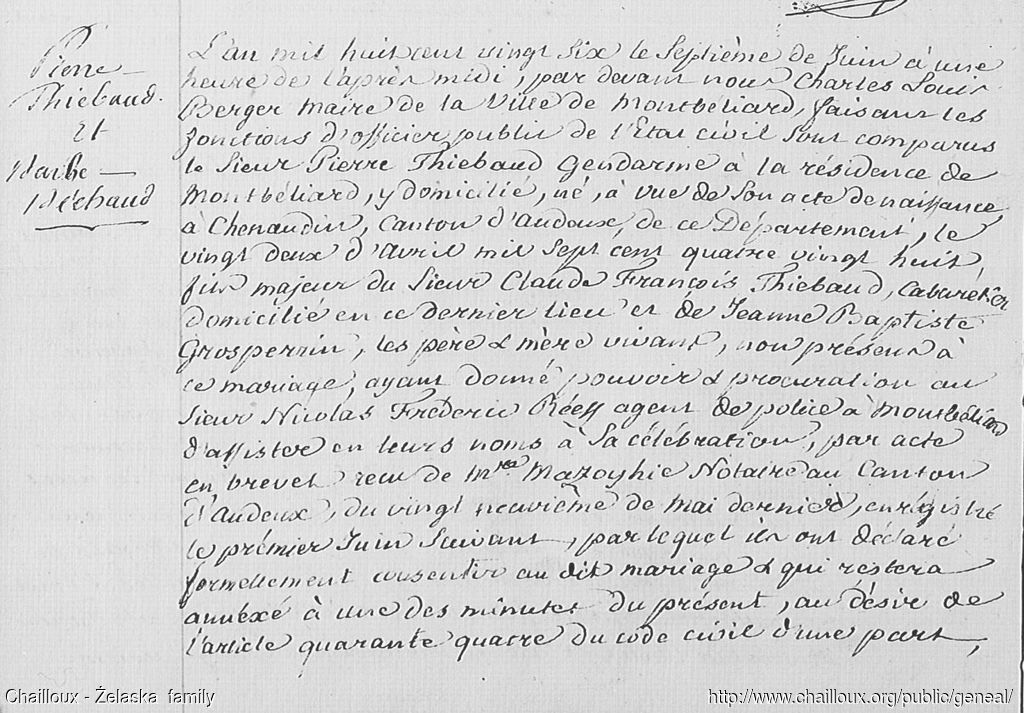 Pierre
Thiebaud.
et
Barbe
Béchaud
L'an mil huit cent vingt six le Septième de Juin à une
heure de l'après midi, par devant nous Charles Louis
Berger Maire de la Ville de Montbéliard, faisant les
fonctions d'officier public de l'Etat civil Sont comparus
le Sieur Pierre Thiebaud Gendarme à la résidence de
Montbéliard, y domicilié, né, à vue de Son acte de naissance,
à Chenaudin, Canton d'Audeux, de ce Département, le
vingt deux d'Avril mil Sept cent quatre vingt huit
fils majeur du Sieur Claude François Thiebaud, Cabaretier
domicilié en ce dernier lieu et de Jeanne Baptiste
Grosperrin, les père & mère vivant, non présens à
ce mariage, ayant donné pouvoir & procuration au
Sieur Nicolas Fréderic Réess agent de police à Montbéliard
d'assister en leurs noms à Sa célébration, par acte
en brevet recu de Mtre Mazoyhie Notaire au Canton
d'Audeux, du vingt neuvième de Mai dernier, enrégistré
le prémier Juin Suivant, par lequel ils ont déclaré
formellement consentir au dit mariage & qui restera
annexé à une des minutes du présent, au désir de
l'article quarante quatre du code civil d'une part,
Chailloux - Želaska family
http://www.chailloux.org/public/geneal/